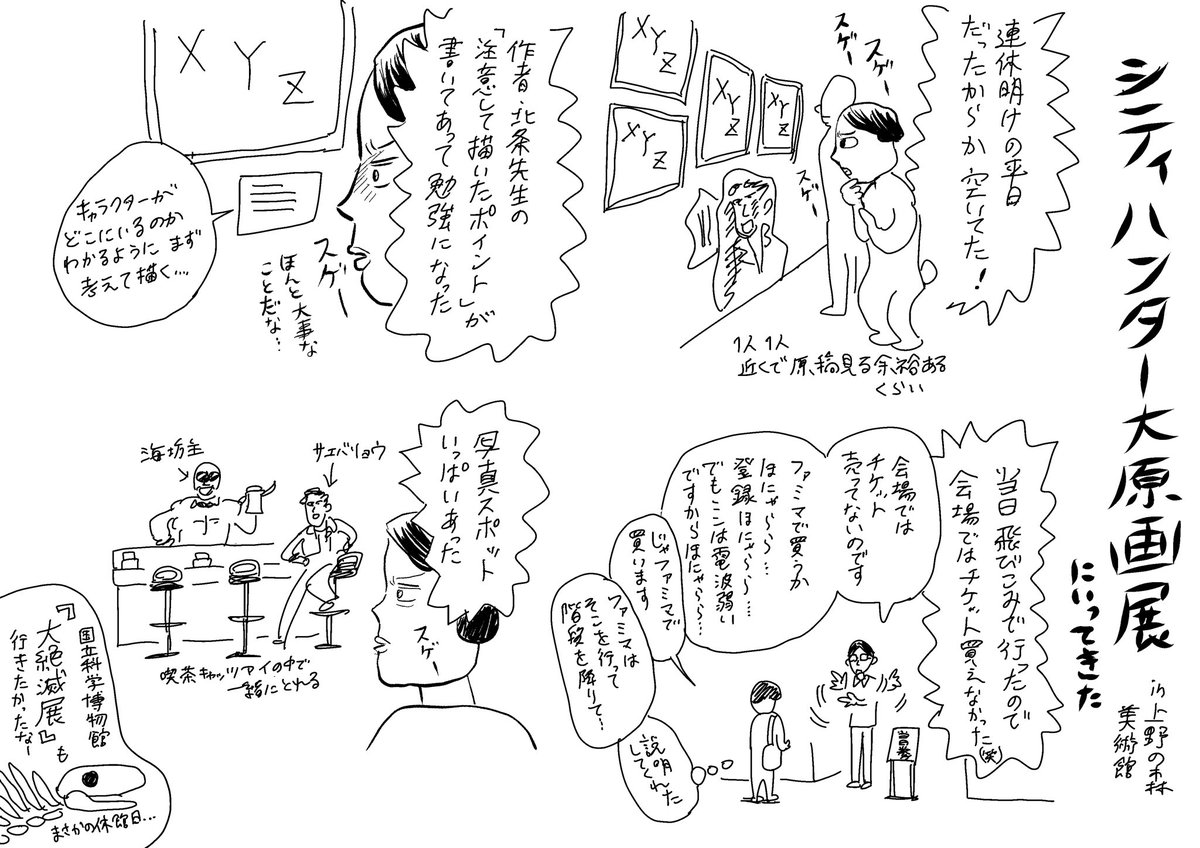 シティハンター大原画展
にいってきた
in 上野の森
美術館
連休明けの平日
だったからか空いてた！
スゲー
スゲー
スゲー
XYZ
XYZ
XYZ
XYZ
1人1人
近くで原稿見る余裕ある
くらい
作者・北条先生の
「注意して描いたポイント」が
書いてあって勉強になった
XYZ
スゲー
ほんと大事な
ことだな…
キャラクターが
どこにいるのか
わかるように まず
考えて描く…
当日飛びこみで行ったので
会場ではチケット買えなかった(笑)
会場では
チケット
売ってないのです
ファミマで買うか
ほにゃらら…
登録ほにゃらら…
でもここは電波弱い
ですからほにゃらら…
じゃファミマで
買います
ファミマは
そこを行って
階段を
降りて…
説明
してくれた
写真スポット
いっぱいあった
スゲー
海坊主
サエバリョウ
喫茶キャッツアイの中で
一緒にとれる
国立科学博物館
『大絶滅展』も
行きたかったなー
まさかの休館日…